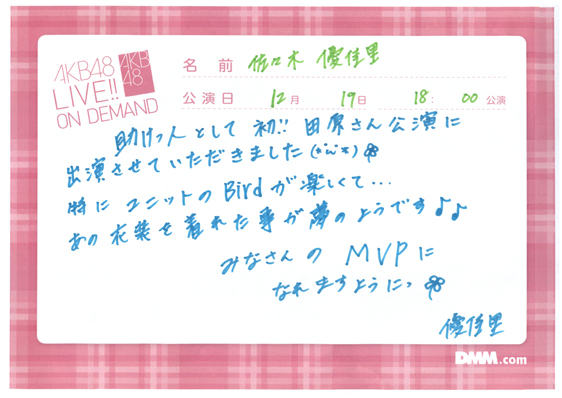 AKB48
LIVE!!
ON DEMAND
AKB
48
名前 佐々木 優佳里
公演日 12月 19日 18:00公演
助けっ人として 初!! 田原さん公演に
出演させていただきました(*´ω`*)
特に ユニットのBirdが楽しくて…
あの 衣装を着れた事が夢のようです♪♪
みなさんの MVPに
なれますようにっ
優佳里
DMM.com